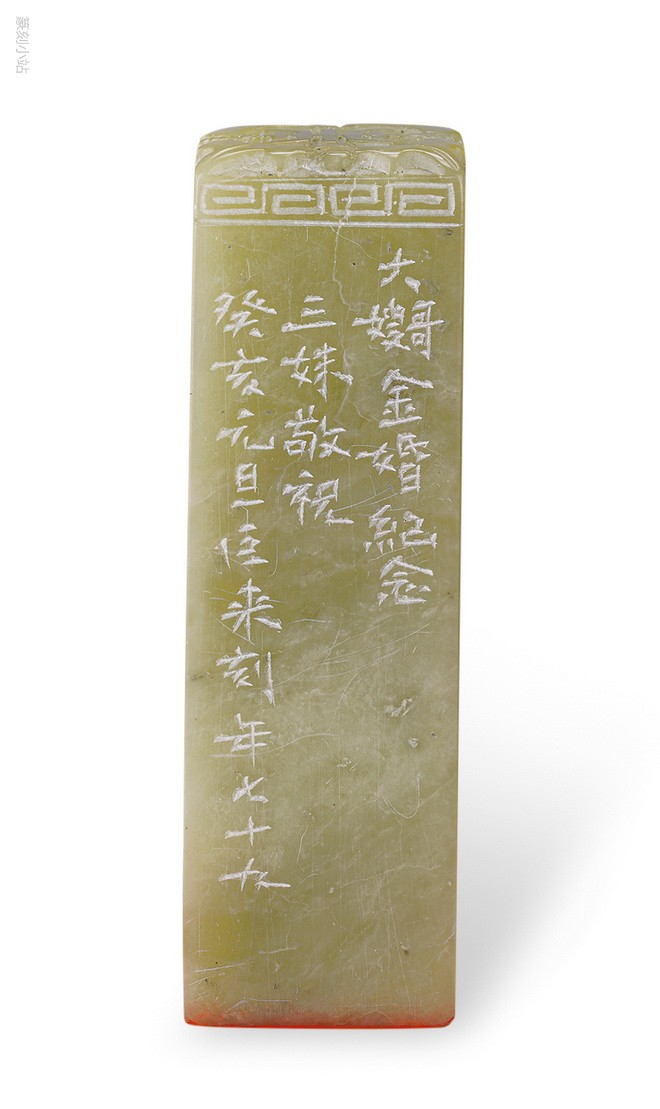 篆刻小站
大哥嫂金婚紀念
三妹敬祝
癸亥元旦巨来刻年七十九